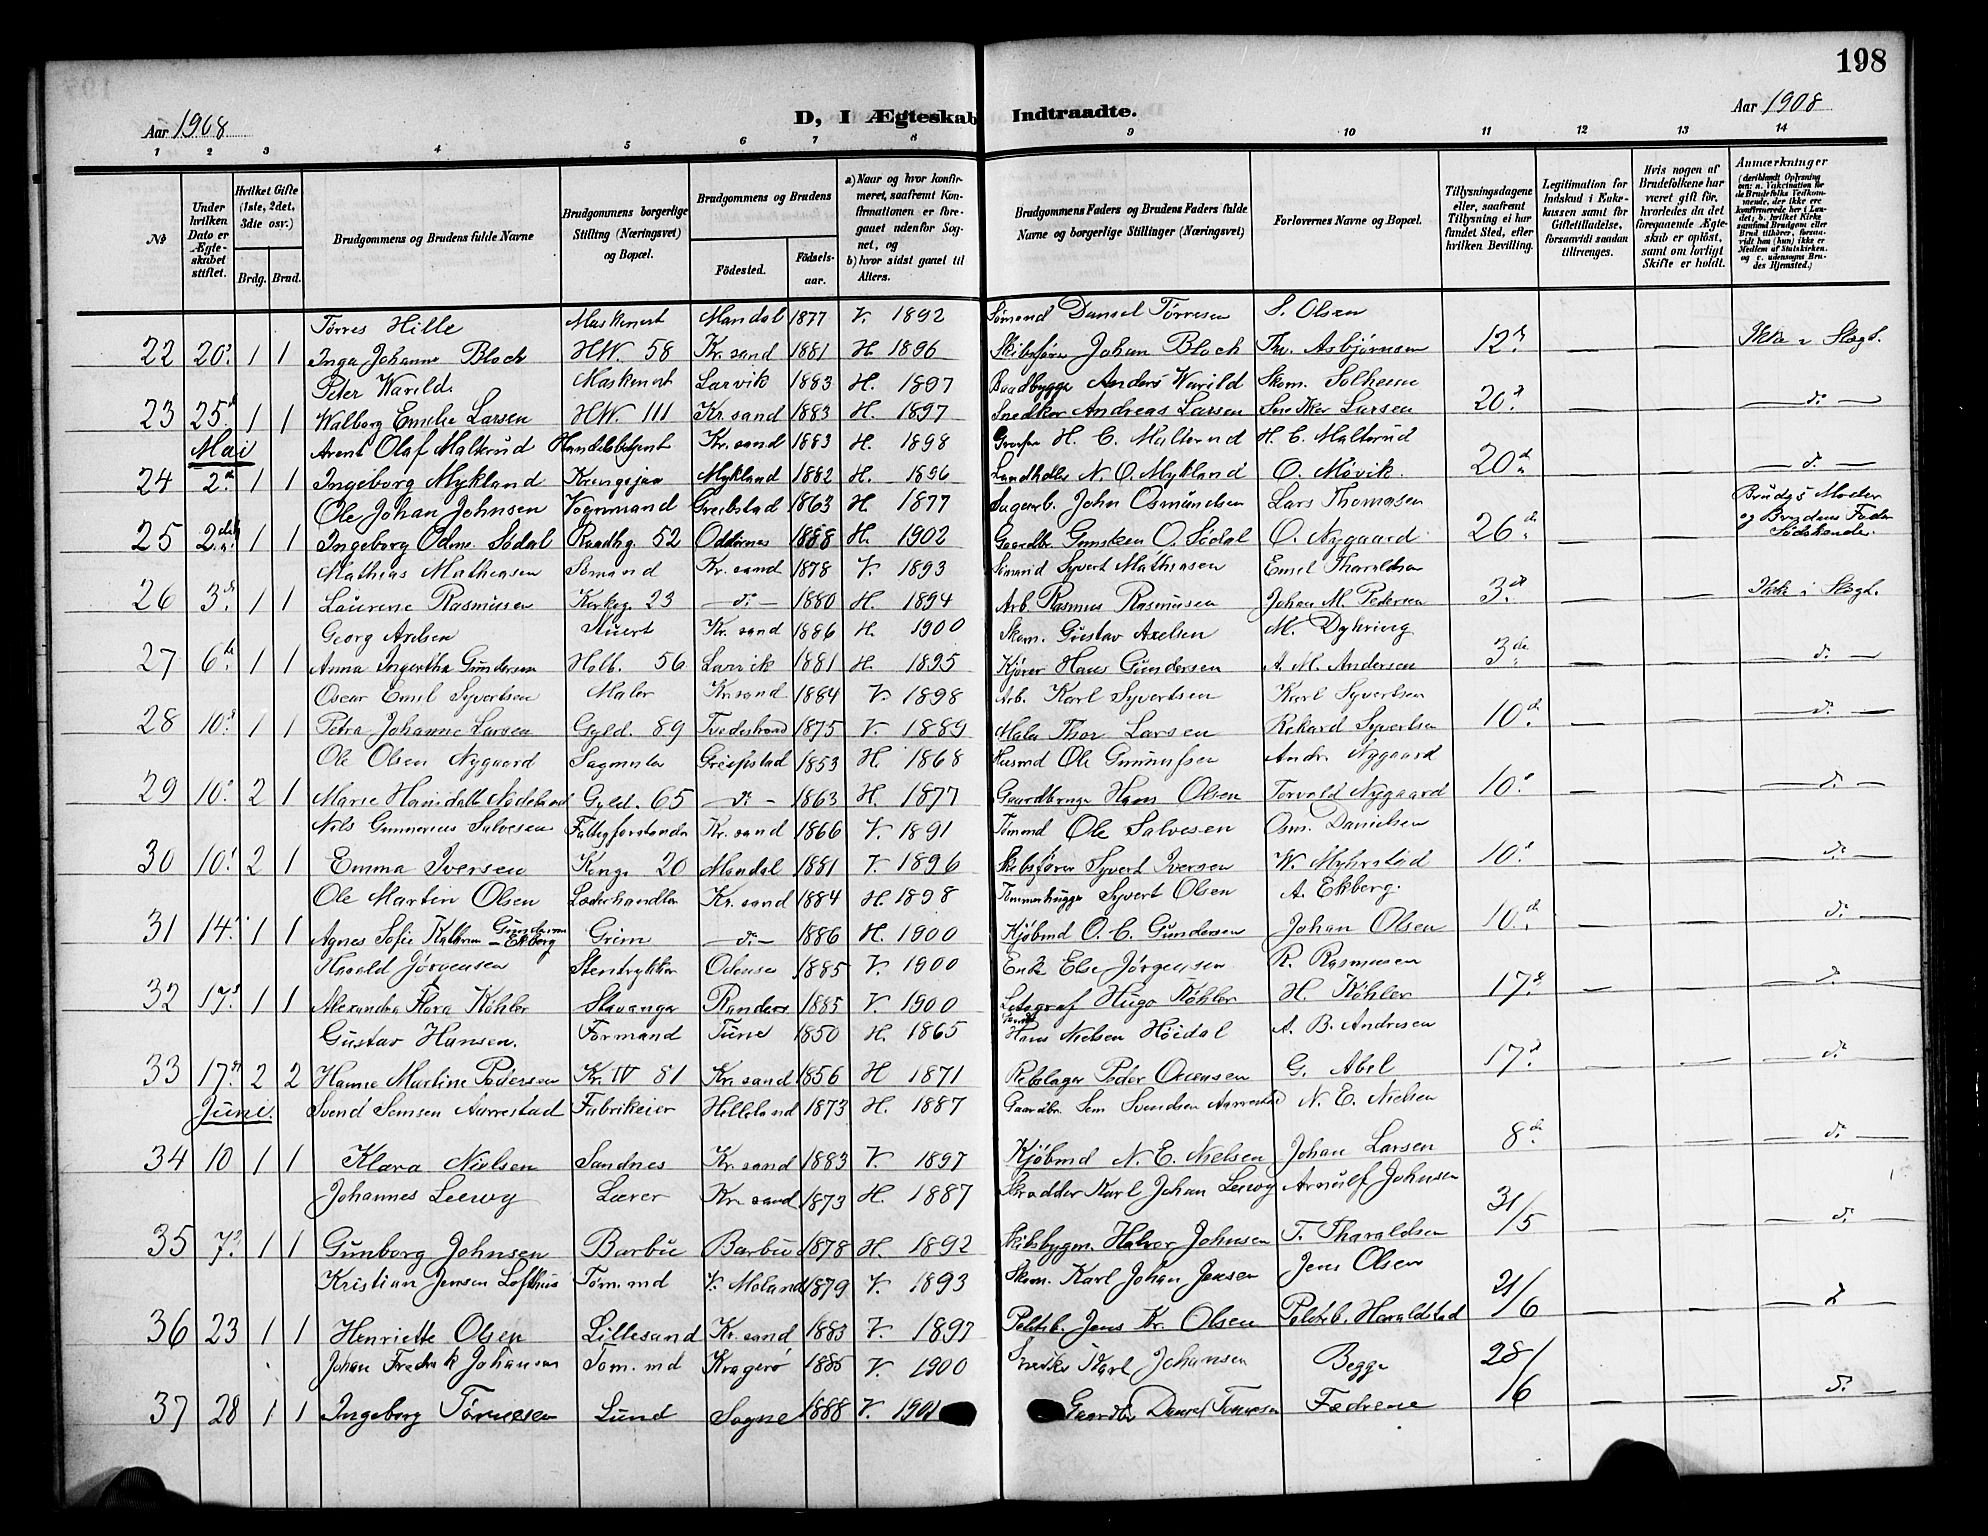 198
Aar 1908
D, I Ægteskab Indtraadte.
Aar 1908
1 2 3 4 5 6 7 8 9 10 11 12 13 14
No
Under hvilken Dato er Ægteskabet stiftet.
Hvilket Gifte (1ste, 2det, 3die osv.)
Brdg. Brud.
Brudgommens og Brudens fulde Navne
Brudgommens borgerlige Stilling (Næringsvei) og Bopæl.
Brudgommens og Brudens
Fødested. Fødsels-aar.
a) Naar og hvor konfirmeret, saafremt Konfirmationen er foregaaet udenfor Sognet, og b) hvor sidst gaaet til Alters.
Brudgommens Faders og Brudens Faders fulde Navne og borgerlige Stillinger (Næringsvei)
Forlovernes Navne og Bopæl.
Tillysningsdagene eller, saafremt Tillysning ei har fundet Sted, efter hvilken Bevilling.
Legitimation for Indskud i Enkekassen samt for Giftetilladelse, forsaavidt saadan tiltrænges.
Hvis nogen af Brudefolkene har været gift før, hvorledes da det foregaaende Ægteskab er opløst, samt om lovligt Skifte er holdt.
Anmærkninger
Tørres Hille Maskenist Mandal 1877 V. 1892 Sømand Daniel Tørresen S. Olsen
22 20. 1 1 Inga Johanne Bloch HW. 58 Kr.sand 1881 H. 1896 Skibsfører Johan Bloch Th. Asbjørnsen 12. — — Ikke i Slægt.
Peter Warild Maskenist Larvik 1883 H. 1897 Baadbygger Anders Warild Skom. Solheim
23 25 1 1 Walborg Emilie Larsen HW. 111 Kr.sand 1883 H. 1897 Snedker Andreas Larsen Snedker Larsen 20. — — — d. —
Mai Arent Olaf Malterud Handelsbetjent Kr.sand 1883 H. 1898 H. C. Malterud H. C. Malterud
24 2. 1 1 Ingeborg Mykland Kongsgaa Mykland 1882 H. 1896 Landhdler N. O. Mykland O. Møvik. 20 — — — d. —
Ole Johan Johnsen Vognmand Greibstad 1863 H. 1877 Sagarb. John Osmundsen Lars Thomasen Brudgs Moder
25 2den 1 1 Ingeborg Odine Sødal Raadhg. 52 Oddernes 1888 H. 1902 Gaardbr. O. Sødal O. Nygaard 26. — — og Brudens Fader Södskende.
Mathias Mathiasen Sömand Kr.sand 1878 V. 1893 Sömand Syvert Mathiasen Emil Tharaldsen
26 3. 1 1 Laurene Rasmusen Kirkeg. 23 — d. — 1880 H. 1894 Arb. Rasmus Rasmusen Johan M. Pedersen 3. — — Ikke i Slægt.
Georg Axelsen Stuert Kr.sand 1886 H. 1900 Skom. Gustav Axelsen M. Dyhring
27 6. 1 1 Anna Ingertha Gundersen Holb. 56 Larvik 1881 H. 1895 Kjører Hans Gundersen A. M. Andersen 3. — — — d. —
Oscar Emil Syvertsen Maler Kr.sand 1884 V. 1898 Arb. Karl Syvertsen Karl Syvertsen
28 10. 1 1 Petra Johanne Larsen Gyld. 89 Tvedestrand 1875 V. 1889 Maler Thor Larsen Rikard Syvertsen 10. — — — d. —
Ole Olsen Nygaard Sagmester Greipstad 1853 H. 1868 Husmd Ole Gunnufsen Andr. Nygaard
29 10. 2 1 Marie Hansdatter Nodeland Gyld. 65 — d. — 1863 H. 1877 Gaardbruger Hans Olsen Torvald Nygaard 10. — — — d. —
Nils Gunnerius Salvesen Fattigforstander Kr.sand 1866 V. 1891 Tömmd Ole Salvesen Osm. Danielsen
30 10. 2 1 Emma Iversen Kongs 20 Mandal 1881 V. 1896 Skibsfører Syvert Iversen W. Myhrstad 10. — — — d. —
Ole Martin Olsen Læderhandler Kr.sand 1884 H. 1898 Tømmerhugger Syvert Olsen A. Ekberg.
31 14. 1 1 Agnes Sofie Kathrine Gundersen — Ekberg Grim — d. — 1886 H. 1900 Kjøbmd O. C. Gundersen Johan Olsen 10. — — — d. —
Harald Jørgensen Stentrykker Odense 1885 V. 1900 Enke Else Jørgensen R. Rasmusen
32 17. 1 1 Alexandra Flora Köhler Stavanger Randers 1885 V. 1900 Hugo Köhler H. Köhler 17. — — — d. —
Gustav Hansen. Formand Tune 1850 H. 1865 Hans Nielsen Höidal A. B. Andresen
33 17. 2 2 Hanne Martine Pedersen Kr. IV 81 Kr.sand 1856 H 1871 Rebslager Peder G. Abel 17. — — — d. —
Juni. Svend Semsen Aarrestad Fabrikeier Helleland 1873 H. 1887 Gaardbr. Sem Svendsen Aarrestad N. E. Nielsen
34 10 1 1 Klara Nielsen Sandnes Kr.sand 1883 V. 1897 Kjøbmd N. E. Nielsen Johan Larsen 8. — — — d. —
Johannes Leewy Lærer Kr.sand 1873 H. 1887 Skrædder Karl Johan Leewy Arnulf Johnsen
35 7. 1 1 Gunborg Johnsen Barbu Barbu 1878 H. 1892 Skibsbygm. Halvor Johnsen T. Tharaldsen 31/5 — — — d. —
Kristian Jensen Lofthus Tøm.md V. Moland 1879 V. 1893 Skom. Karl Johan Jensen Jens Olsen
36 23 1 1 Henriette Olsen Lillesand Kr.sand 1883 V. 1897 Politib. Jens Kr. Olsen Politib. Haraldstad 21/6 — — — d —
Johan Fredrik Johansen Tøm.md Kragerø 1885 V. 1900 Snedker Karl Johansen Begge
37 28 1 1 Ingeborg Tørresen Lund Sogne 1888 V. 1901 Gaardbr Daniel Tørresen Fædrene 28/6 — — — d. —